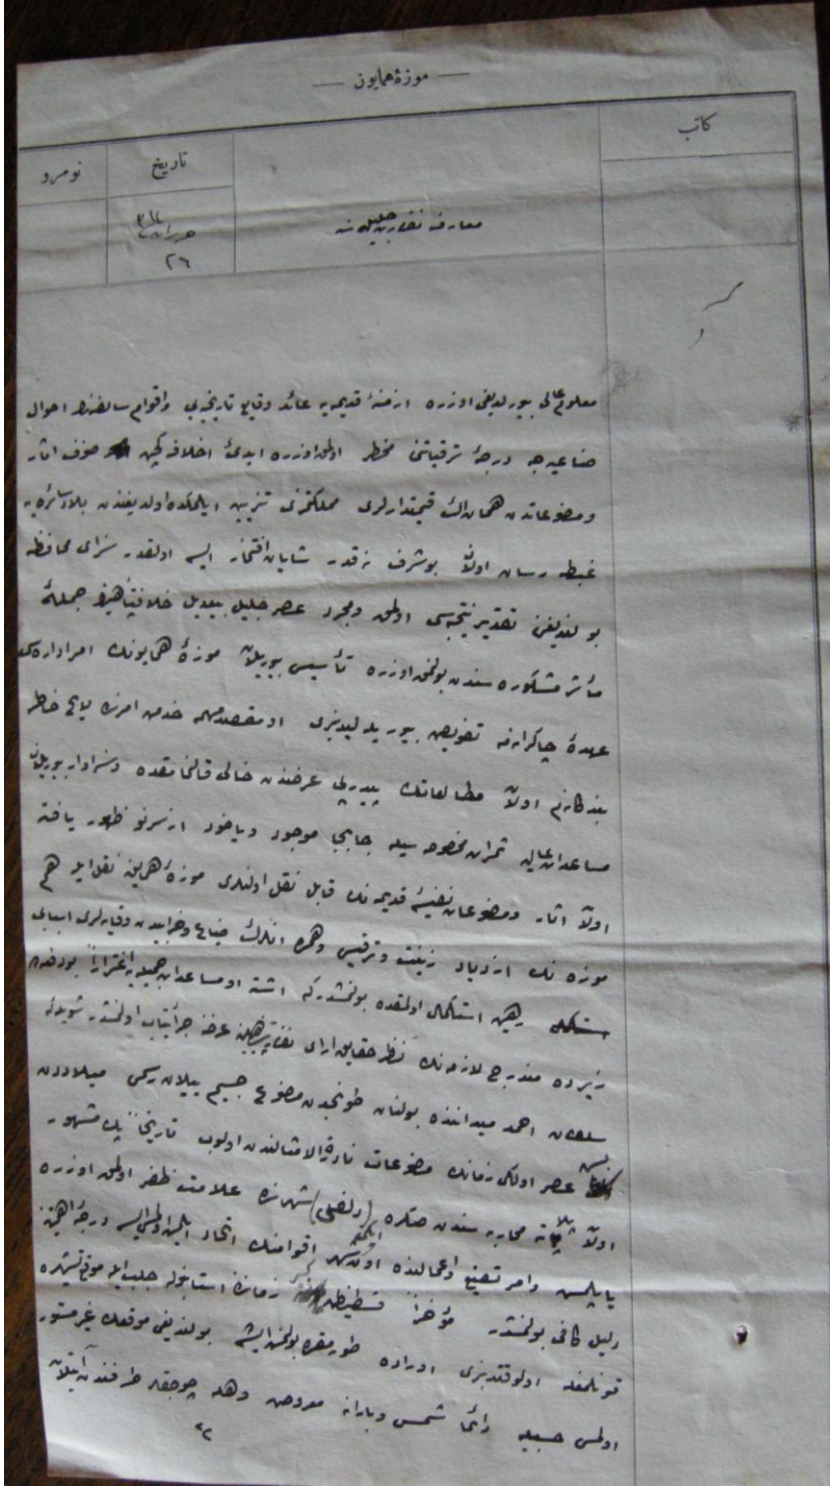 موزهٔ همایون
کاتب
تاریخ
نومرو
معارف نظارت جلیله‌سنه
حزیران ٣١٤
٢٦
معلوم عالی بیورلدیغی اوزره ازمنهٔ قدیمه‌یه عائد وقایع تاریخیه‌یی و اقوام سالفه‌نك احوال
صناعیه‌جه درجهٔ ترقیاتنی مخطر اولمق اوزره اخلافه صنوف آثار
و مصنوعاتدن همان اڭ قیمتدارلری مملکتمزی تزیین ایلمکده اولدیغندن بلاد سائره‌یه
غبطه رسان اولان بو شرف نه قدر شایان افتخار ایسه اولقدر سزای محافظه
بولندیغنی تقدیر نتیجه‌سی اولمق و مجرد عصر جلیل بیعدیل خلافتپناهینك جملهٔ
مآثر مشکوره‌سندن بولنمق اوزره تأسیس بیوریلان موزهٔ همایونك امر اداره‌سی
عهدهٔ چاکرانه‌مه تفویض بیوریله‌لیدنبری او مقصد مهمه خدمت امرنده لایح خاطر
بندگانه‌م اولان مطالعاتك پیدرپی عرضندن خالی قالنمامقده و سزاوار بیوریلان
مساعدات عالیه ثمراتی مخصوصه‌سیله جابجا موجود ویاخود ازسرنو ظهور یافته
اولان آثار و مصنوعات نفیسهٔ قدیمه‌نك قابل نقل اولنلری موزهٔ همایونه نقل ایله هم
موزه‌نك ازدیاد زینت و ترقیسی وهم ده آنلرك ضیاع و خرابیدن وقایه‌لری اسبابی
رهین استکمال اولمقده بولنمشدر که اشته او مساعدات جمیله‌یه اغتراراً بو دفعه ده
زیرده مندرج لازمه‌نك نظر حقایق آرای نظارتپناهیلرینه عرضنه جرأتیاب اولنمشدر شویله که
سلطان احمد میداننده بولنان طونجدن مصنوع جسیم ییلان رسمی میلاددن
بش عصر اولکی زمانك مصنوعات نادرة الامثالندن اولوب تاریخاً پك مشهور
اولان پلاته محاربه‌سندن صکره (دلفی) شهرنده علامت ظفر اولمق اوزره
یاپلمش و امر تصنیع و اعمالنده اوتوز بر شهر اقوامنك اتحاد ایلمش اولملری ایسه درجهٔ اهمیتنه
دلیل کافی بولنمشدر مؤخراً قسطنطین زماننده استانبوله جلب ایله موقع تشهیره
قونلمغله اولوقتدنبری اوراده طورمقده بولنمش ایسه ده بولندیغی موقعك غیر مستور
اولمسی حسبیله دائما شمس و بارانه معروض و هله چوجقلر طرفندن آتیلان